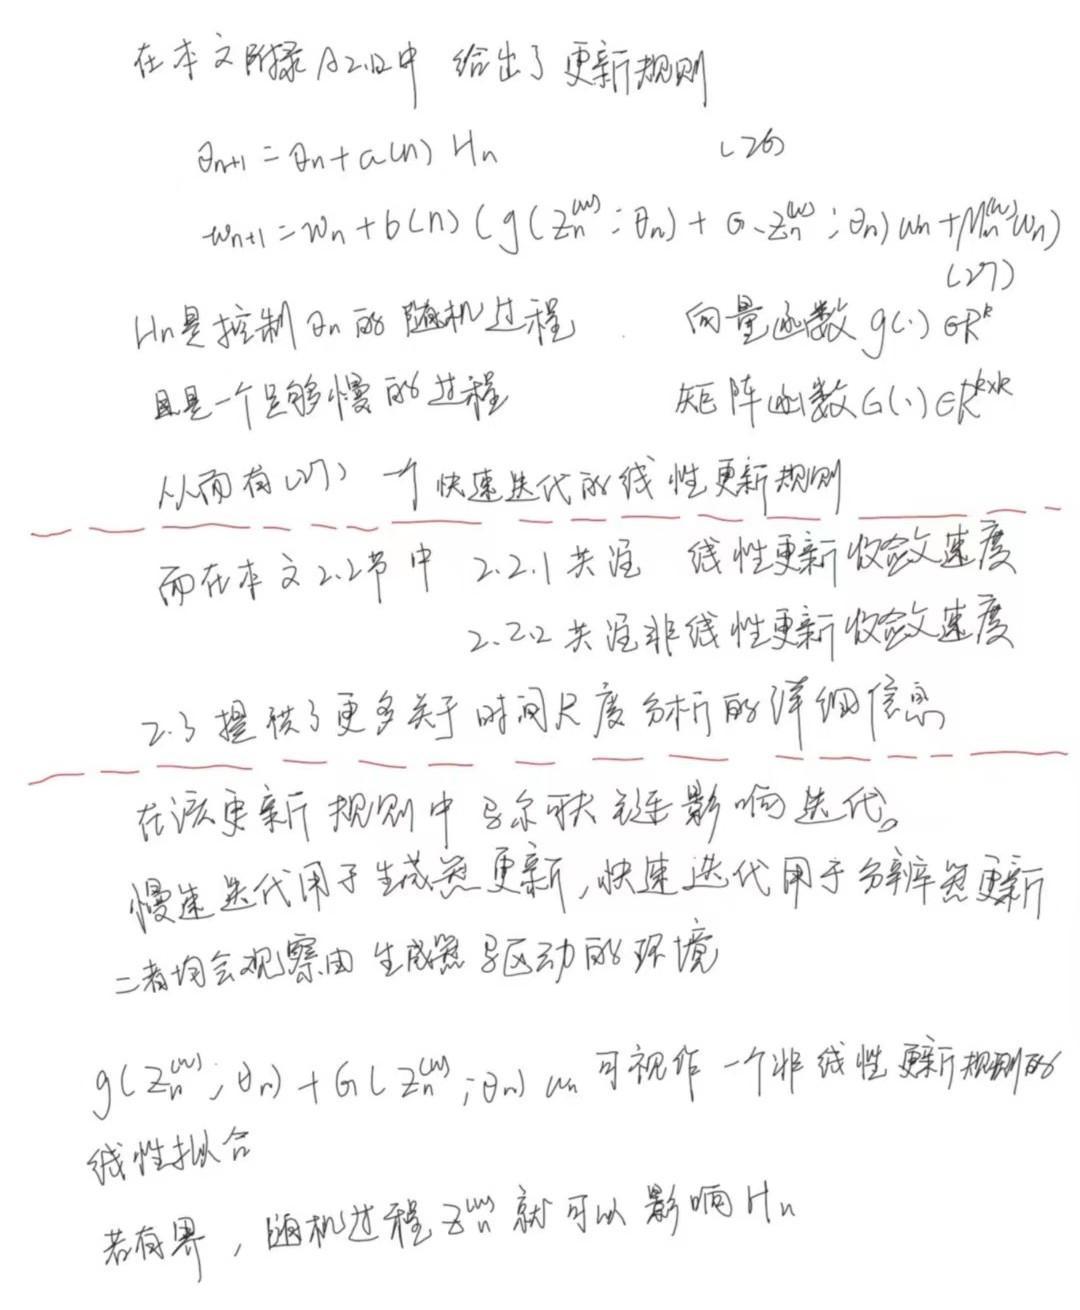 在本文附录A2.1.2中 给出了更新规则
θn+1 = θn + a(n) Hn (26)
wn+1 = wn + b(n) (g(Zn^(w); θn) + G(Zn^(w); θn) wn + Mn^(w) wn)
(27)
Hn是控制θn的随机过程 . 向量函数 g(·) ∈ R^k
且是一个足够慢的过程 矩阵函数 G(·) ∈ R^k×k
从而有(27) 一个快速迭代的线性更新规则
而在本文2.2节中 2.2.1 关注 线性更新收敛速度
2.2.2 关注非线性更新收敛速度
2.3 提供了更多关于时间尺度分析的详细信息
在该更新规则中马尔可夫链影响迭代。
慢速迭代用于生成器更新,快速迭代用于分辨器更新
二者均会观察由生成器驱动的环境
g(Zn^(w); θn) + G(Zn^(w); θn) wn 可视作一个非线性更新规则的
线性拟合
若有界,随机过程Zn^(w)就可以影响Hn